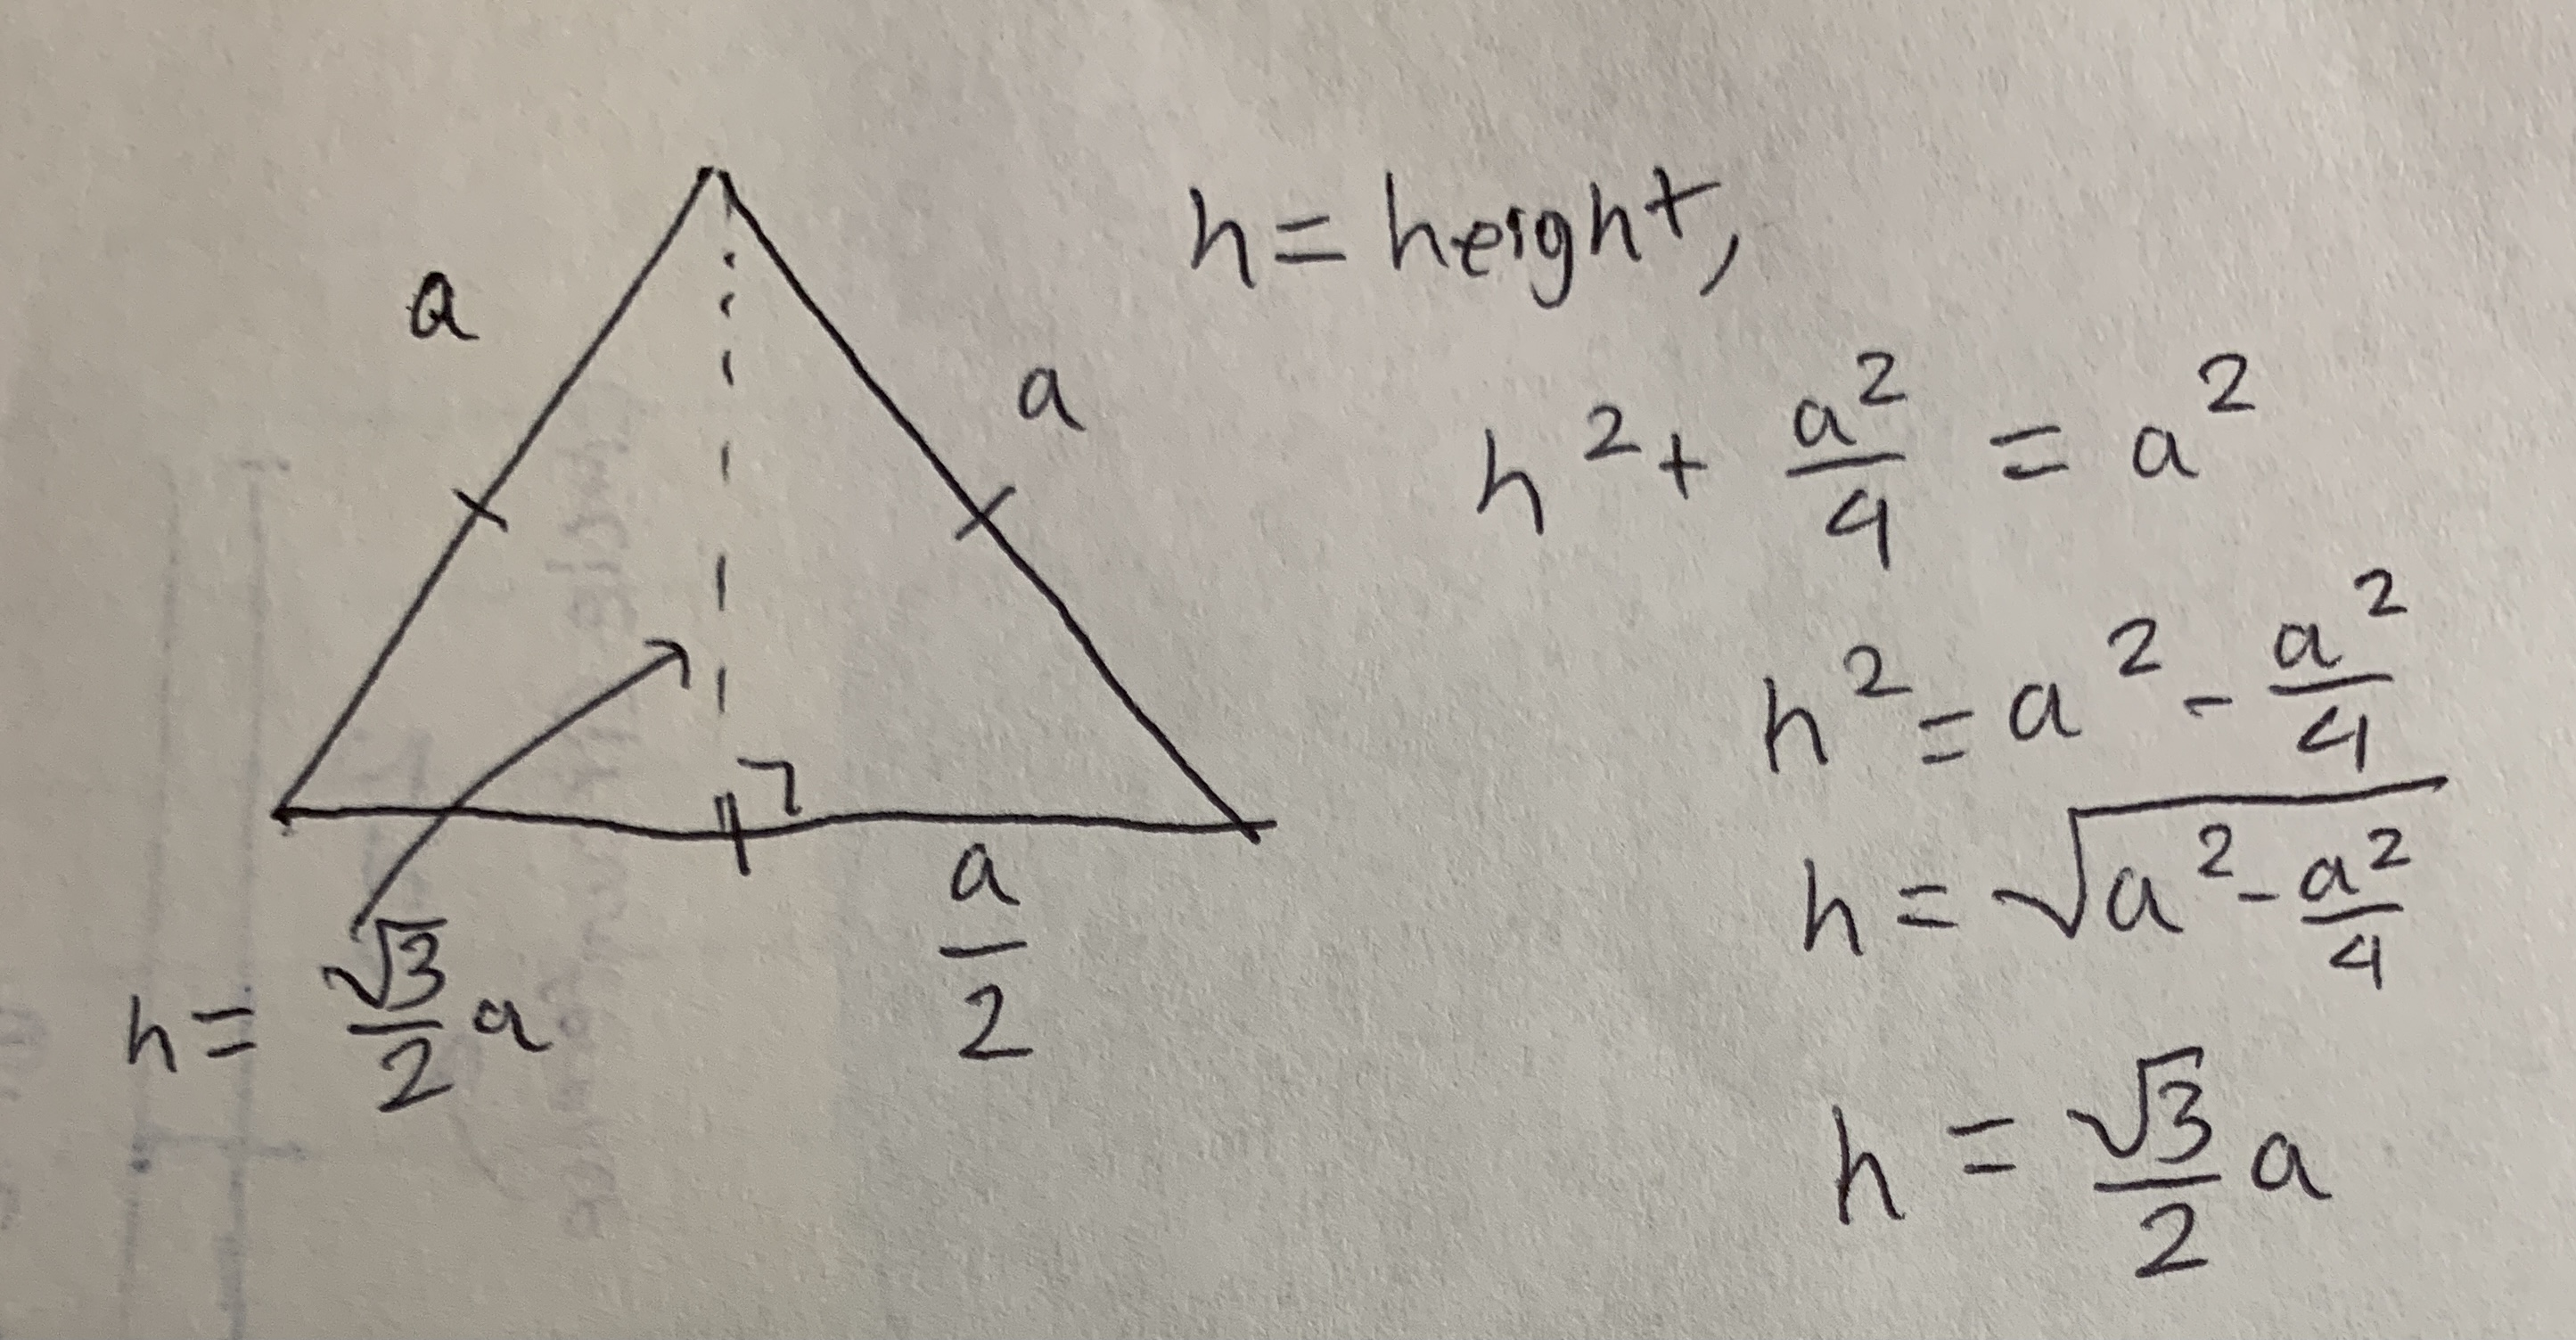 a
a
a/2
h = √3/2 a
h = height,
h² + a²/4 = a²
h² = a² - a²/4
h = √(a² - a²/4)
h = √3/2 a